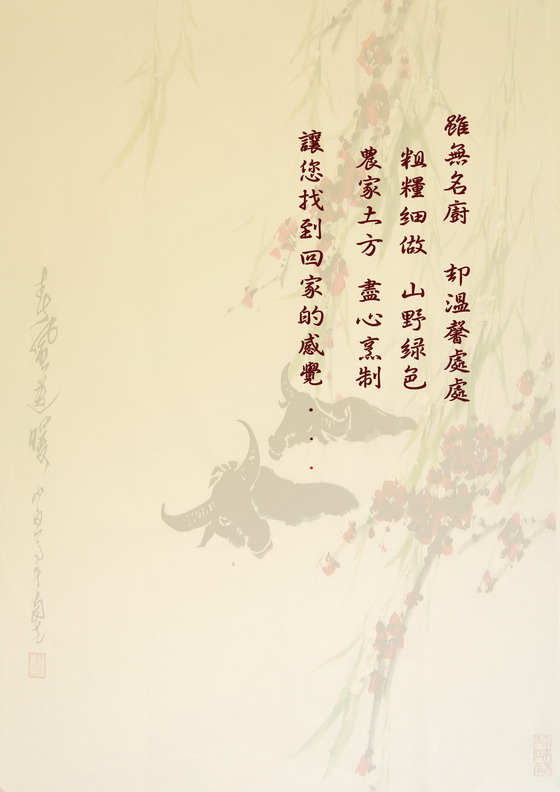 雖無名廚 却溫馨處處
粗糧细做 山野绿色
農家土方 盡心烹制
讓您找到回家的感覺...